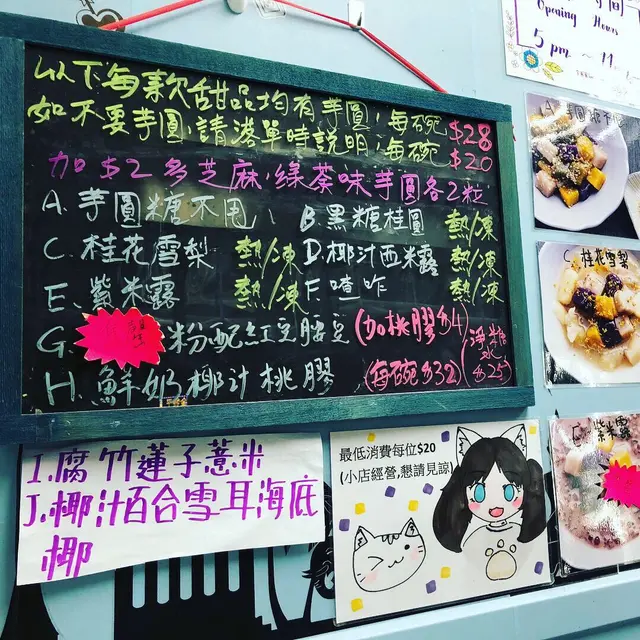 以下每款甜品均有芋圓,每碗$28
如不要芋圓,請落單時說明,每碗$20
加$2多芝麻,綠茶味芋圓各2粒
A.芋圓糖不甩
B.黑糖桂圓 熱/凍
C.桂花雪梨 熱/凍
D.椰汁西米露 熱/凍
E.紫米露 熱/凍
F.喳咋 熱/凍
G. 粉配紅豆腰豆(加桃膠$4)
H.鮮奶椰汁桃膠(每碗$32)
I.腐竹蓮子薏米
J.椰汁百合雪耳海底
椰
最低消費每位$20
(小店經營,懇請見諒)
Opening Hours
5 pm
C.桂花雪梨
紫米露